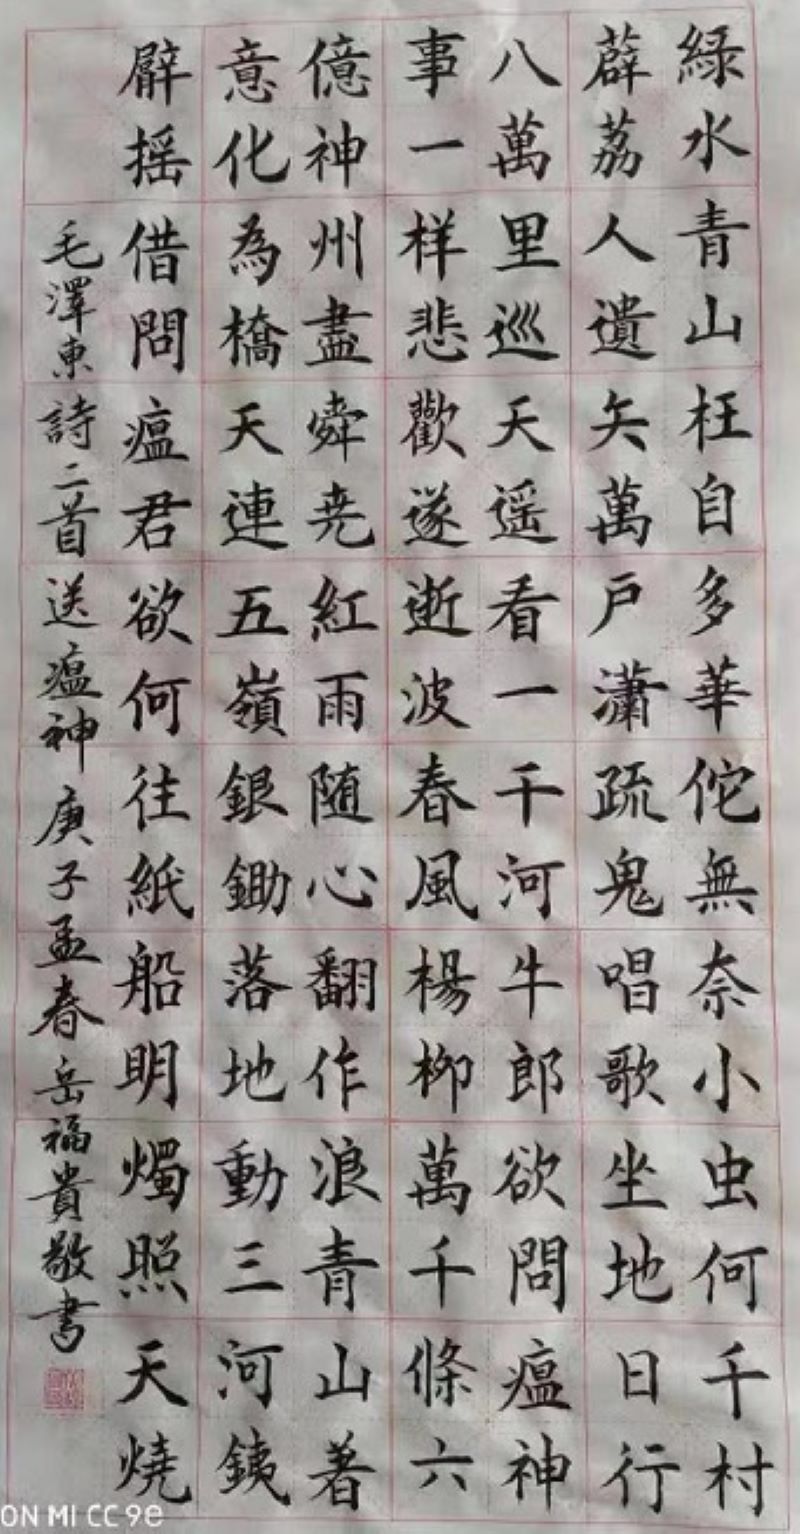 緑水青山枉自多華佗無奈小虫何千村
薜荔人遺矢萬戸瀟疏鬼唱歌坐地日行
八萬里巡天遥看一千河牛郎欲問瘟神
事一样悲歡遂逝波春風楊柳萬千條六
億神州盡舜尭紅雨随心翻作浪青山著
意化為橋天連五嶺銀鋤落地動三河銕
臂摇借問瘟君欲何往紙船明燭照天燒
毛澤東詩二首送瘟神庚子孟春岳福貴敬书
ON MI CC 9e